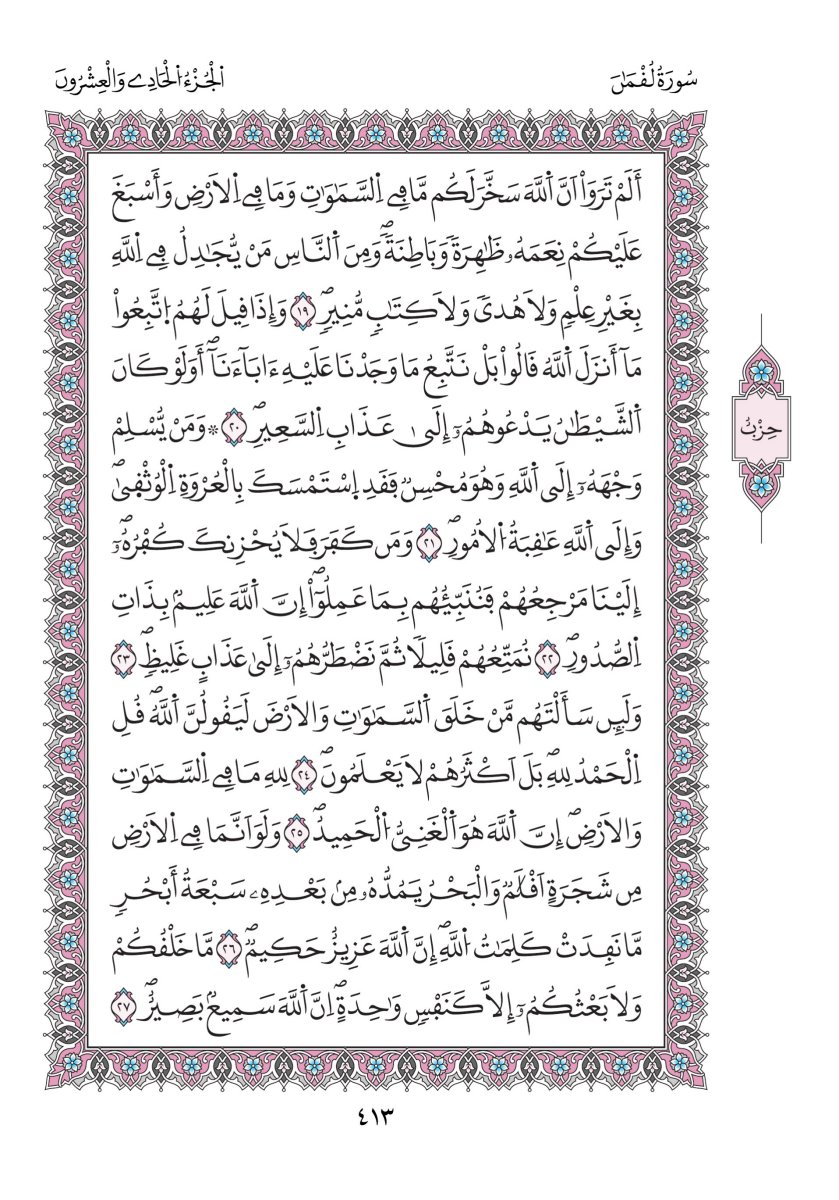 سُورَةُ لُقْمَٰنَ
اَلْجُزْءُ اُلْحَادِے وَالْعِشْرُونَ
أَلَمْ تَرَوَاْ اَنَّ اَللَّهَ سَخَّرَ لَكُم مَّا فِے اِلسَّمَٰوَٰتِ وَمَا فِے اِلَارْضِ وَأَسْبَغَ
عَلَيْكُمْ نِعَمَهُۥ ظَٰهِرَةٗ وَبَاطِنَةٗۖ وَمِنَ اَلنَّاسِ مَنْ يُّجَٰدِلُ فِے اِللَّهِ
بِغَيْرِ عِلْمٖ وَلَا هُدىٗ وَلَا كِتَٰبٖ مُّنِيرٖۖ ١٩ وَإِذَا قِيلَ لَهُمُ اُتَّبِعُواْ
مَآ أَنزَلَ اَللَّهُ قَالُواْ بَلْ نَتَّبِعُ مَا وَجَدْنَا عَلَيْهِ ءَابَآءَنَآۖ أَوَلَوْ كَانَ
اَلشَّيْطَٰنُ يَدْعُوهُمُۥٓ إِلَىٰ عَذَابِ اِلسَّعِيرِۖ ٢٠ * وَمَنْ يُّسْلِمْ
وَجْهَهُۥٓ إِلَى اَللَّهِ وَهُوَ مُحْسِنٞ فَقَدِ اِسْتَمْسَكَ بِالْعُرْوَةِ اِلْوُثْقَىٰۖ
وَإِلَى اَللَّهِ عَٰقِبَةُ اُلُامُورِۖ ٢١ وَمَن كَفَرَ فَلَا يُحْزِنكَ كُفْرُهُۥٓۖ
إِلَيْنَا مَرْجِعُهُمْ فَنُنَبِّئُهُم بِمَا عَمِلُوٓاْۖ إِنَّ اَللَّهَ عَلِيمُۢ بِذَاتِ
اِلصُّدُورِۖ ٢٢ نُمَتِّعُهُمْ قَلِيلٗا ثُمَّ نَضْطَرُّهُمُۥٓ إِلَىٰ عَذَابٍ غَلِيظٖۖ ٢٣
وَلَئِن سَأَلْتَهُم مَّنْ خَلَقَ اَلسَّمَٰوَٰتِ وَالَارْضَ لَيَقُولُنَّ اَللَّهُۖ قُلِ
اِلْحَمْدُ لِلهِۖ بَلَ اَكْثَرُهُمْ لَا يَعْلَمُونَۖ ٢٤ لِلهِ مَا فِے اِلسَّمَٰوَٰتِ
وَالَارْضِۖ إِنَّ اَللَّهَ هُوَ اَلْغَنِيُّ اُلْحَمِيدُۖ ٢٥ وَلَوَ اَنَّمَا فِے اِلَارْضِ
مِن شَجَرَةٍ اَقْلَٰمٞ وَالْبَحْرُ يَمُدُّهُۥ مِنۢ بَعْدِهِۦ سَبْعَةُ أَبْحُرٖ
مَّا نَفِدَتْ كَلِمَٰتُ اُللَّهِۖ إِنَّ اَللَّهَ عَزِيزٌ حَكِيمٞۖ ٢٦ مَّا خَلْقُكُمْ
وَلَا بَعْثُكُمُۥٓ إِلَّا كَنَفْسٖ وَٰحِدَةٍۖ اِنَّ اَللَّهَ سَمِيعُۢ بَصِيرٌۖ ٢٧
حِزْبٌ
٤١٣